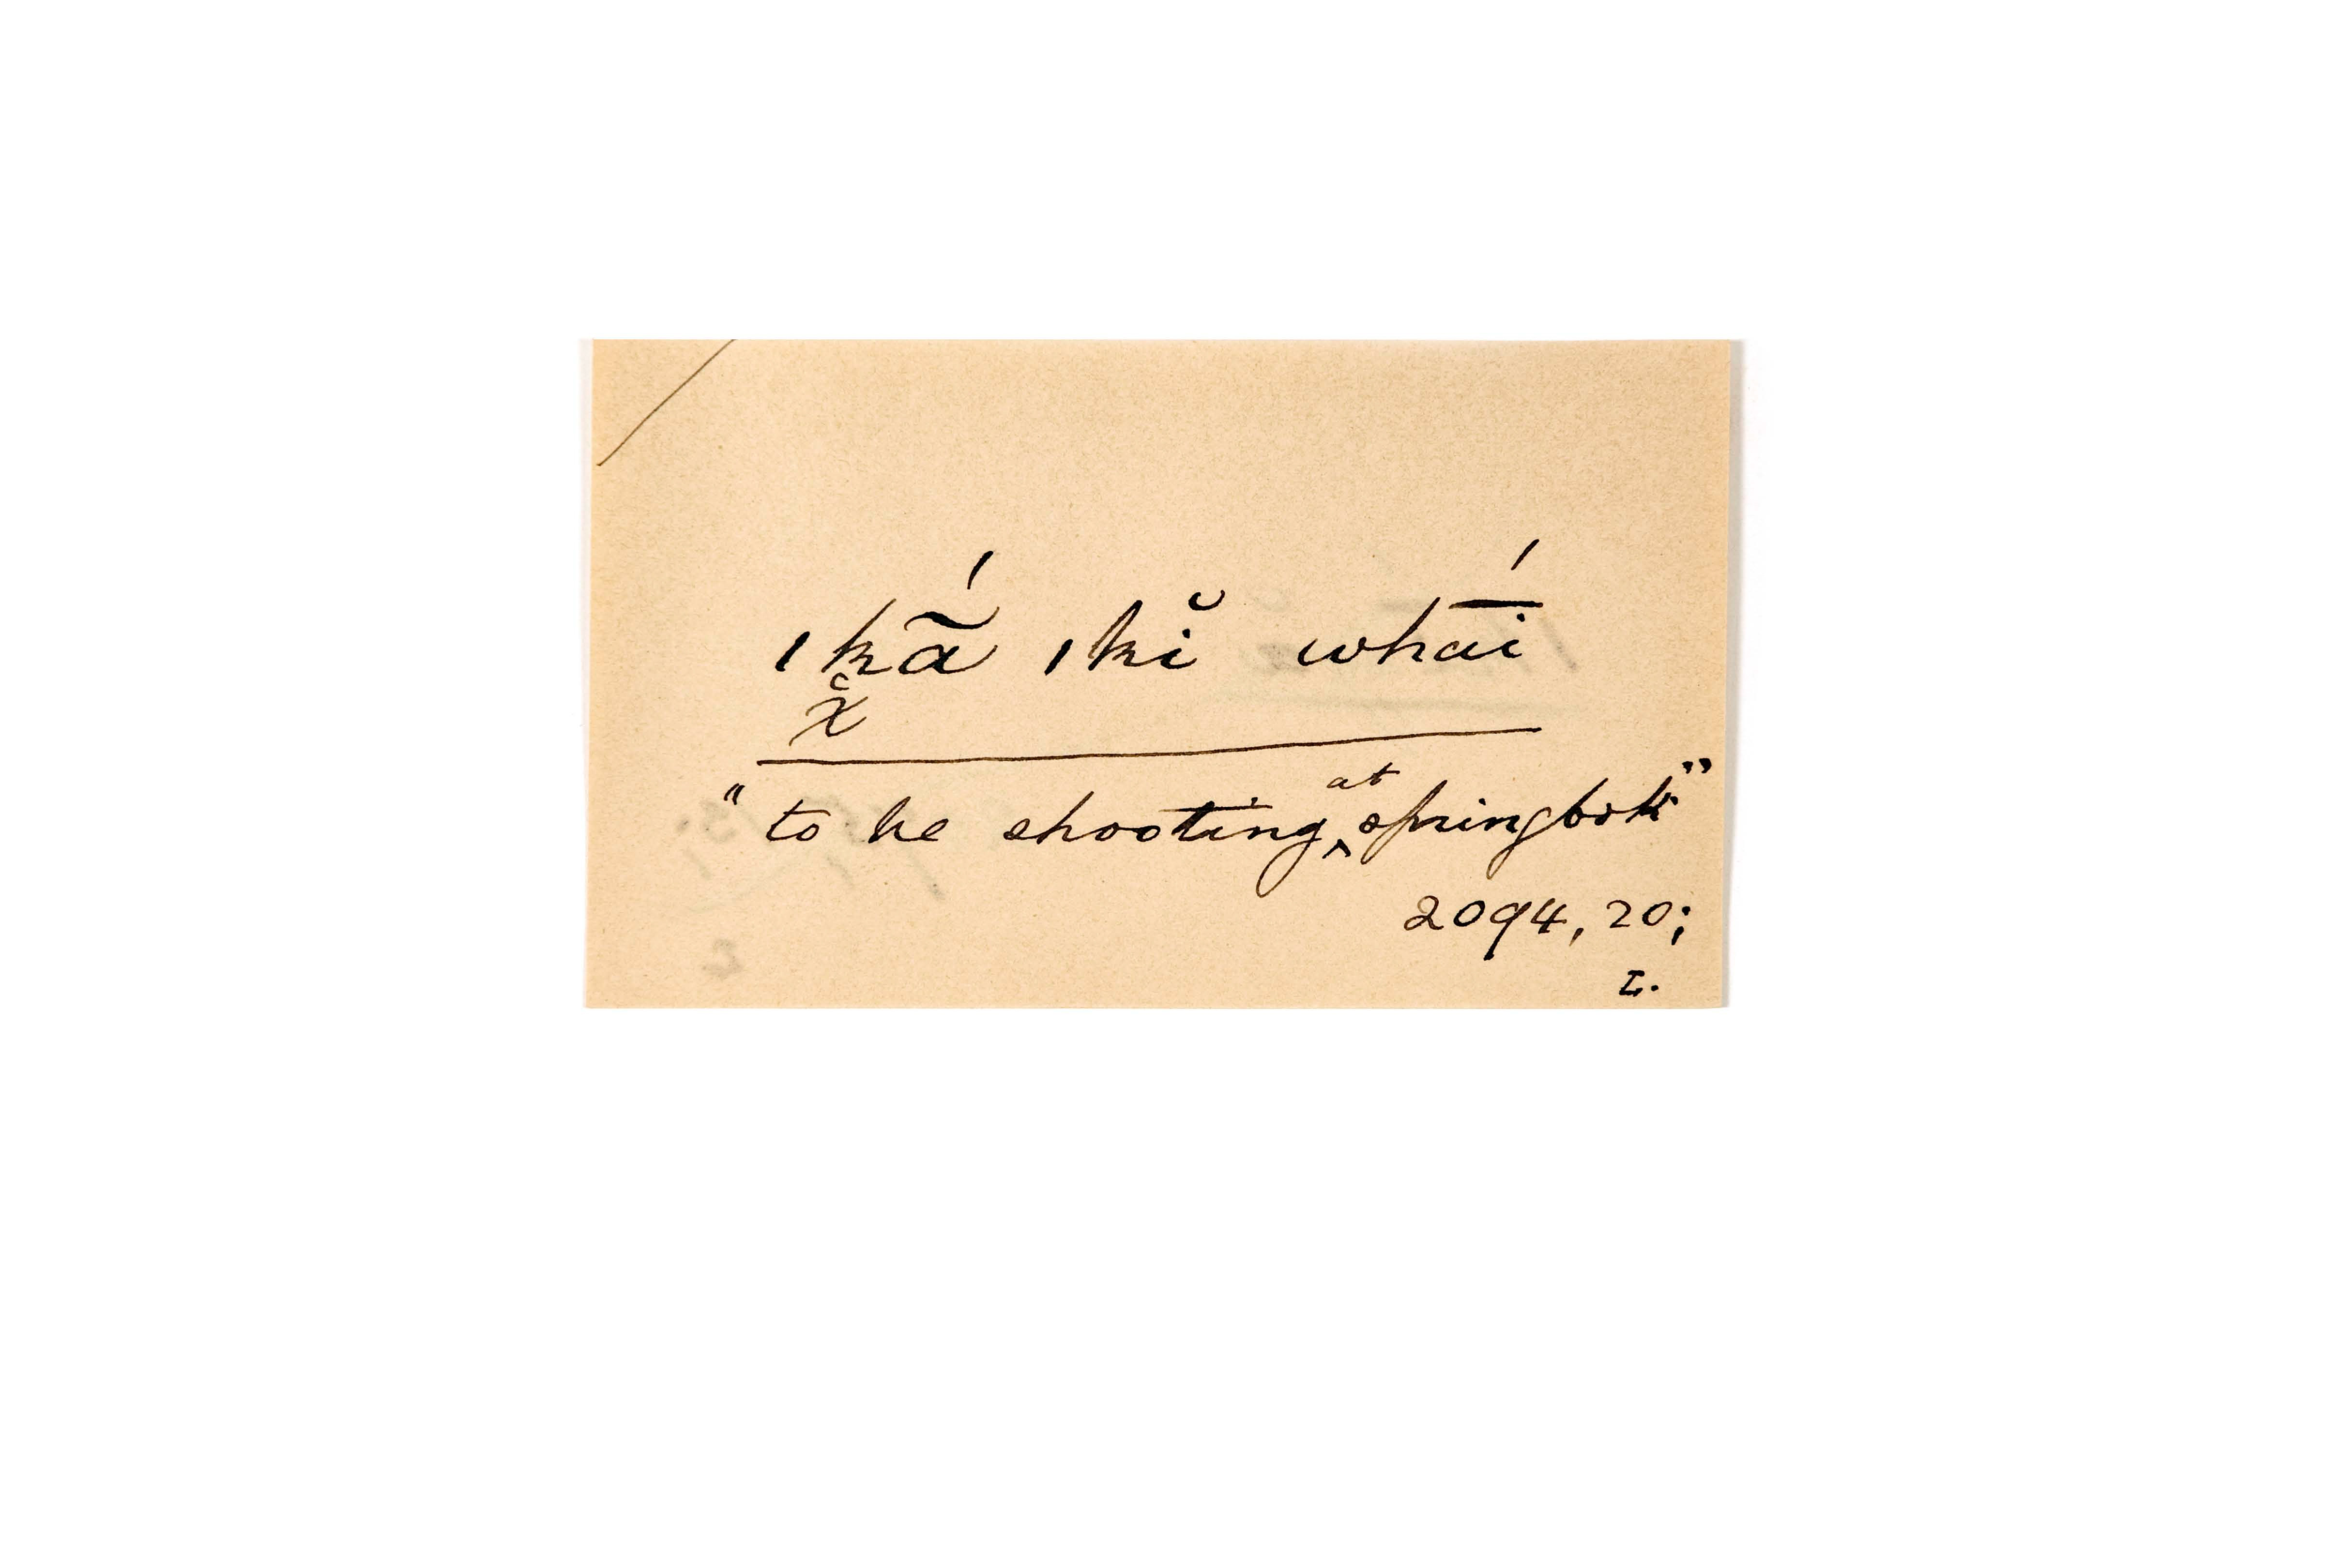 ǀkā̃́ ǀkĭ whā́i
x̆
"to be shooting at springbok"
2094, 20;
L.